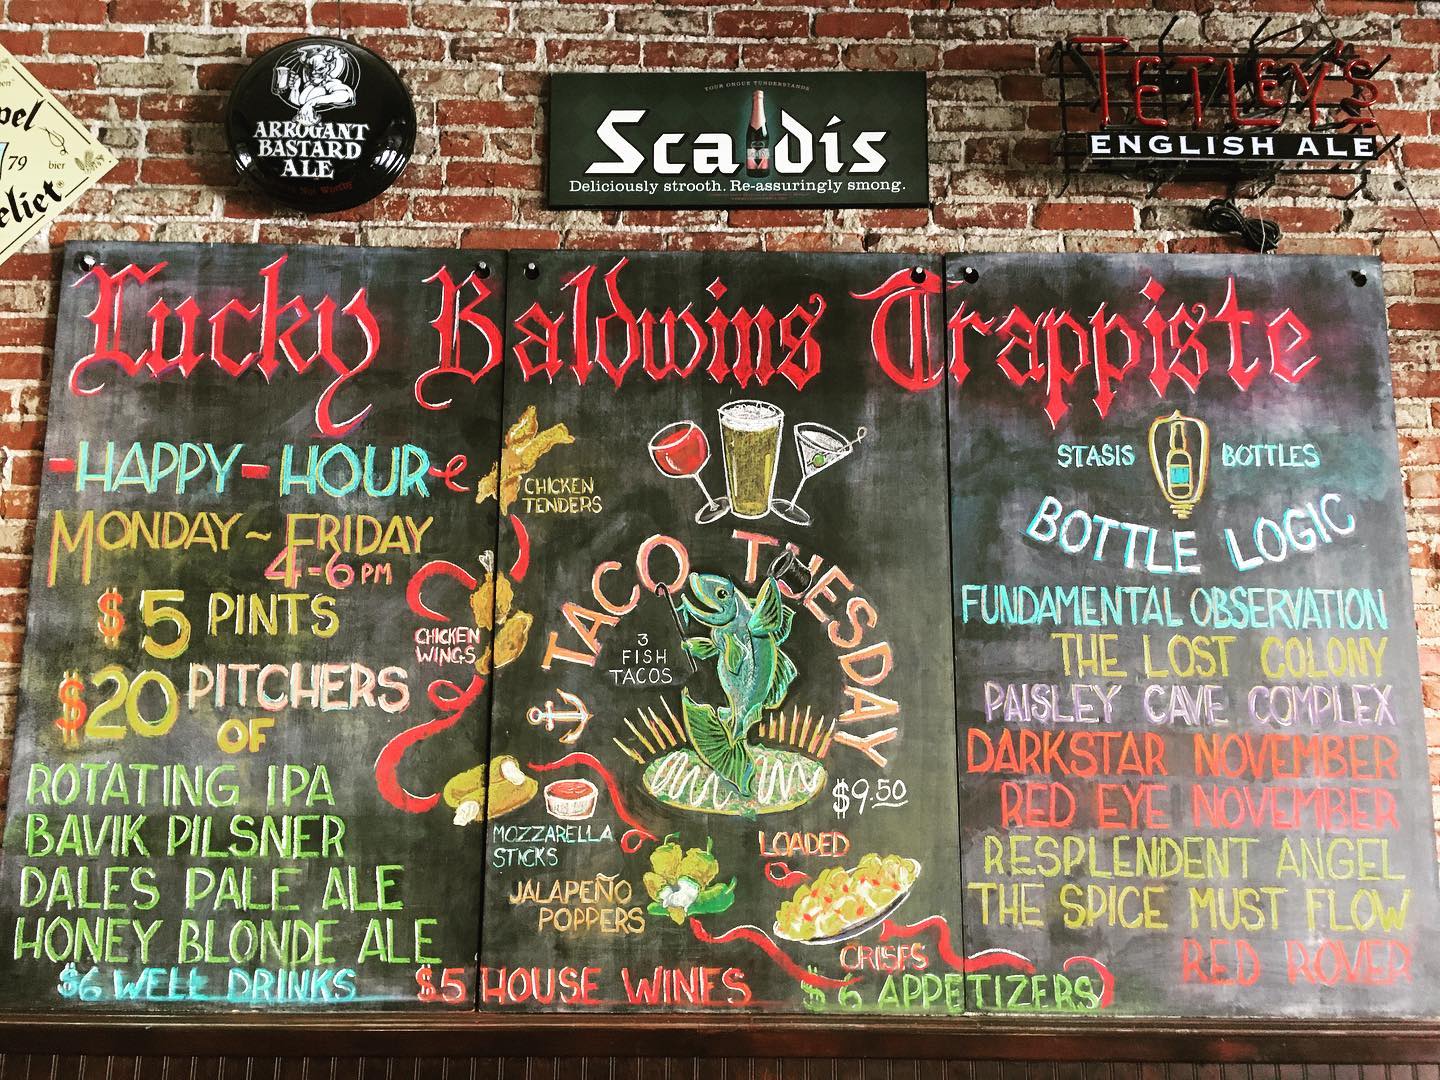 79
bier
ARROGANT
BASTARD
ALE
Scaldis
Deliciously strooth. Re-assuringly smong.
TETLEY'S
ENGLISH ALE
Lucky Baldwins Trappiste
-HAPPY-HOUR
MONDAY~FRIDAY
4-6PM
$5 PINTS
$20 PITCHERS
OF
ROTATING IPA
BAVIK PILSNER
DALES PALE ALE
HONEY BLONDE ALE
$6 WELL DRINKS
$5 HOUSE WINES
$6 APPETIZERS
CHICKEN
TENDERS
CHICKEN
WINGS
TACO TUESDAY
3
FISH
TACOS
$9.50
MOZZARELLA
STICKS
JALAPEÑO
POPPERS
LOADED
CRISPS
STASIS BOTTLES
BOTTLE LOGIC
FUNDAMENTAL OBSERVATION
THE LOST COLONY
PAISLEY CAVE COMPLEX
DARKSTAR NOVEMBER
RED EYE NOVEMBER
RESPLENDENT ANGEL
THE SPICE MUST FLOW
RED ROVER